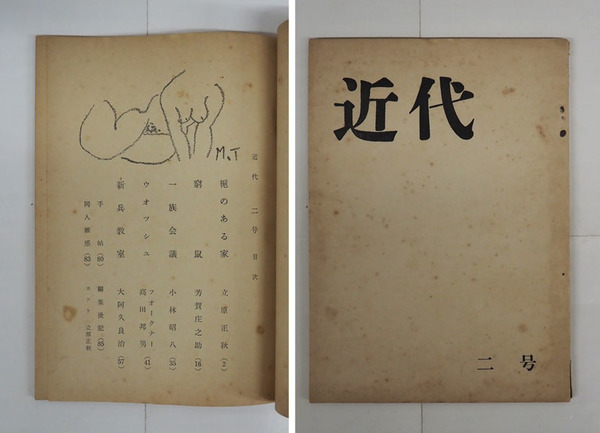 M.T
近代 二号 目次
梔のある家 立原正秋 (2)
窮鼠 芳賀庄之助 (16)
一族会議 小林昭八 (35)
ウオツシュ フオークナー 高田邦男 (41)
新兵教室 大阿久良治 (57)
手帖 (80) 編集後記 (85)
同人雑感 (83) カット 立原正秋
近代
二号